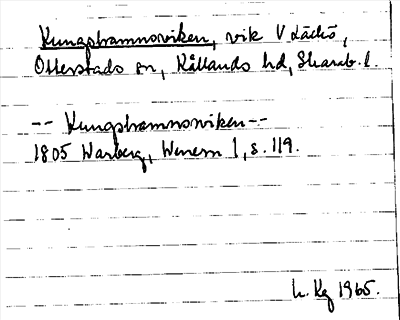 Kungshamnsviken, vik V Läckö,
Otterstads sn, Kållands hd, Skarab. l.
-- Kungshamnsviken --
1805 Warberg, Wenern 1, s. 119.
L. Kg 1965.